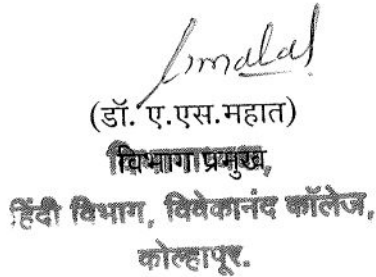 (डॉ. ए.एस.महात)
विभाग प्रमुख,
हिंदी विभाग, विवेकानंद कॉलेज,
कोल्हापूर.